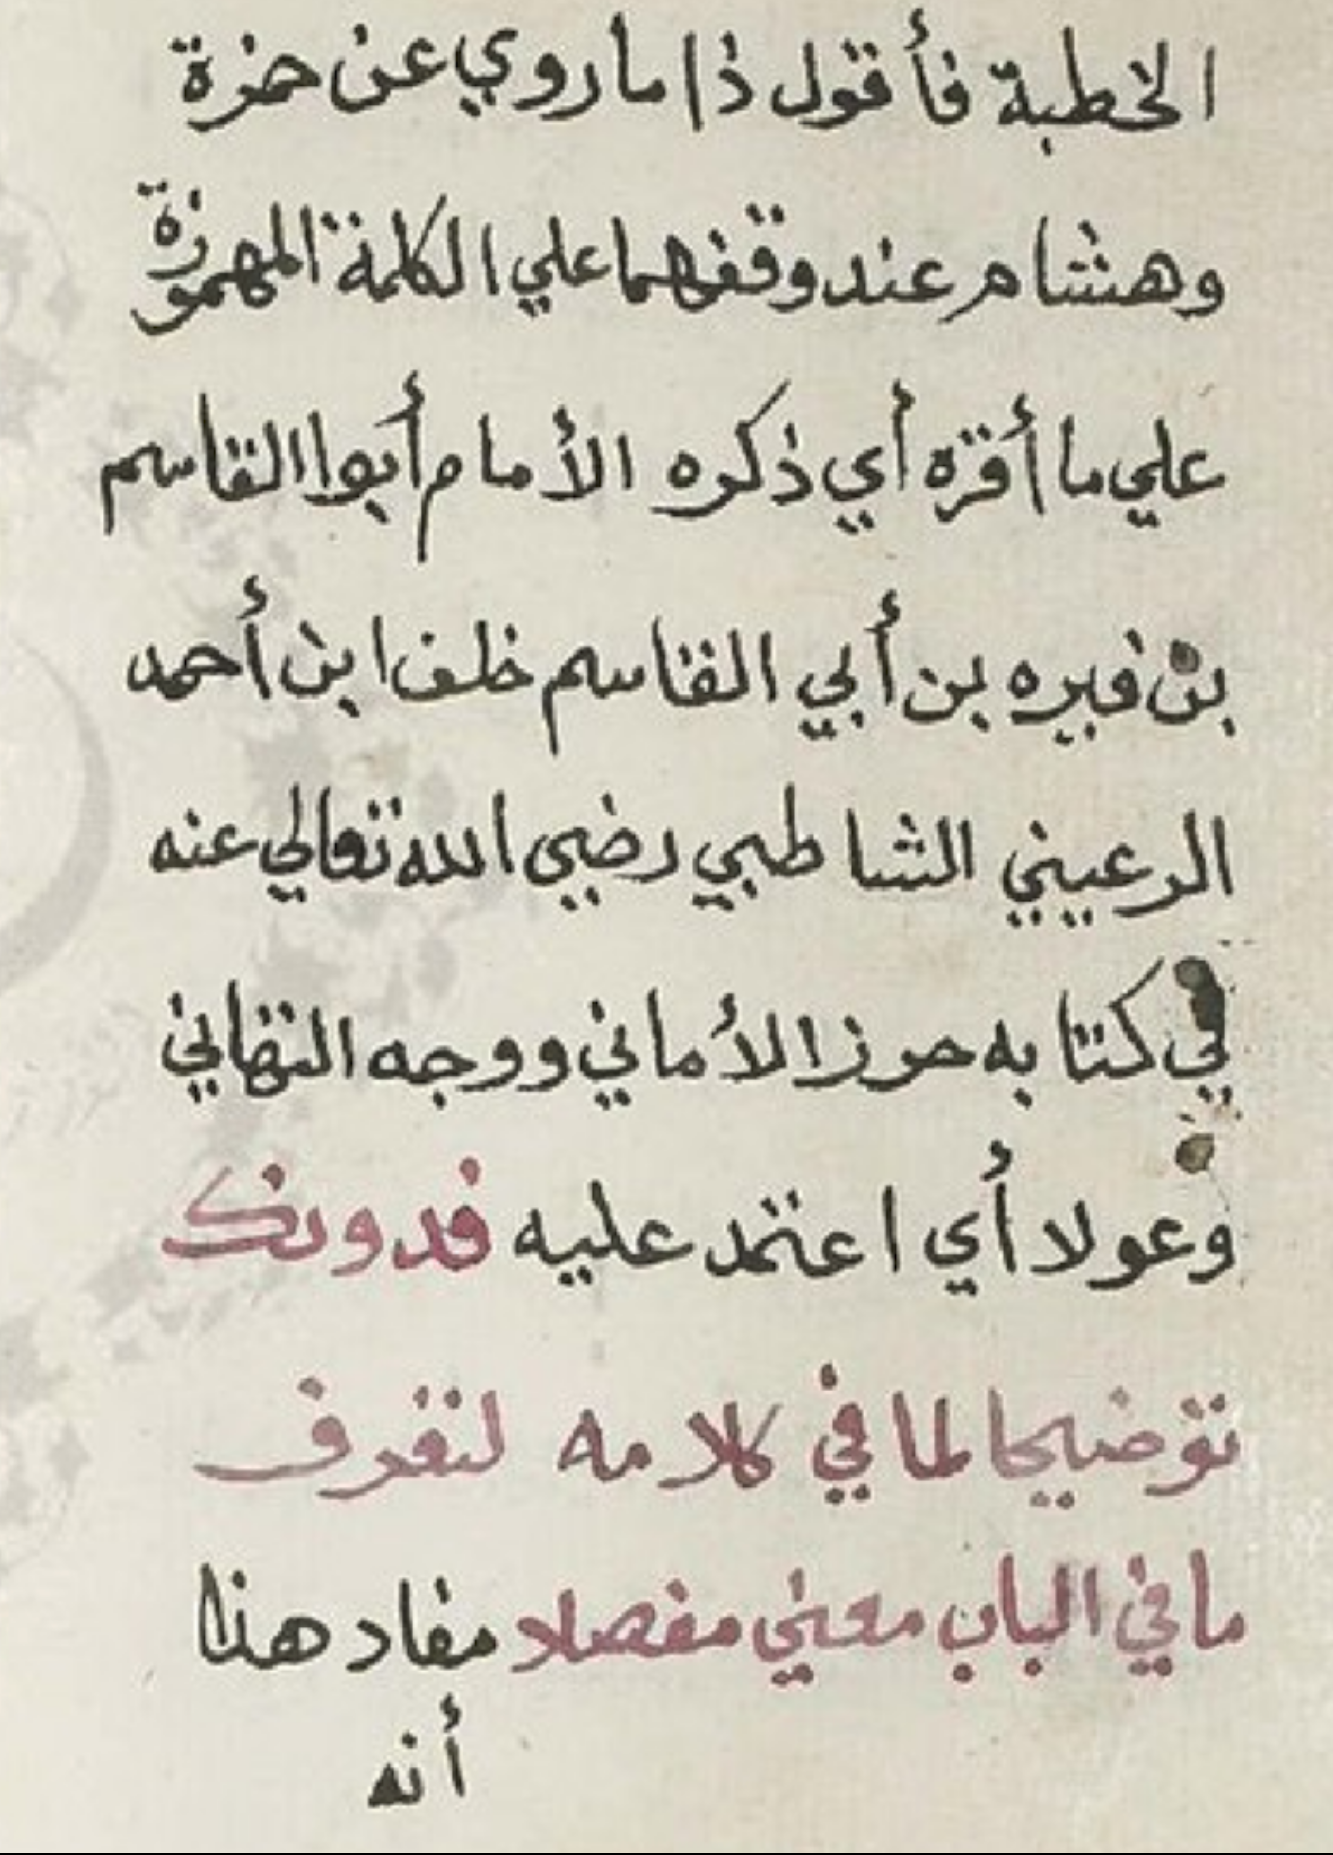 الخطبة فأقول ذا ما روي عن حمزة
وهشام عند وقفهما علي الكلمة المهموزة
علي ما أقره أي ذكره الأمام أبوا القاسم
بن فيره بن أبي القاسم خلف ابن أحمد
الرعيني الشاطبي رضي الله تعالي عنه
في كتابه حرز الأماني ووجه التهاني
وعولا أي اعتمد عليه فدونك
توضيحا لما في كلامه لتعرف
ما في الباب معني مفصلا مفاد هذا
أنه